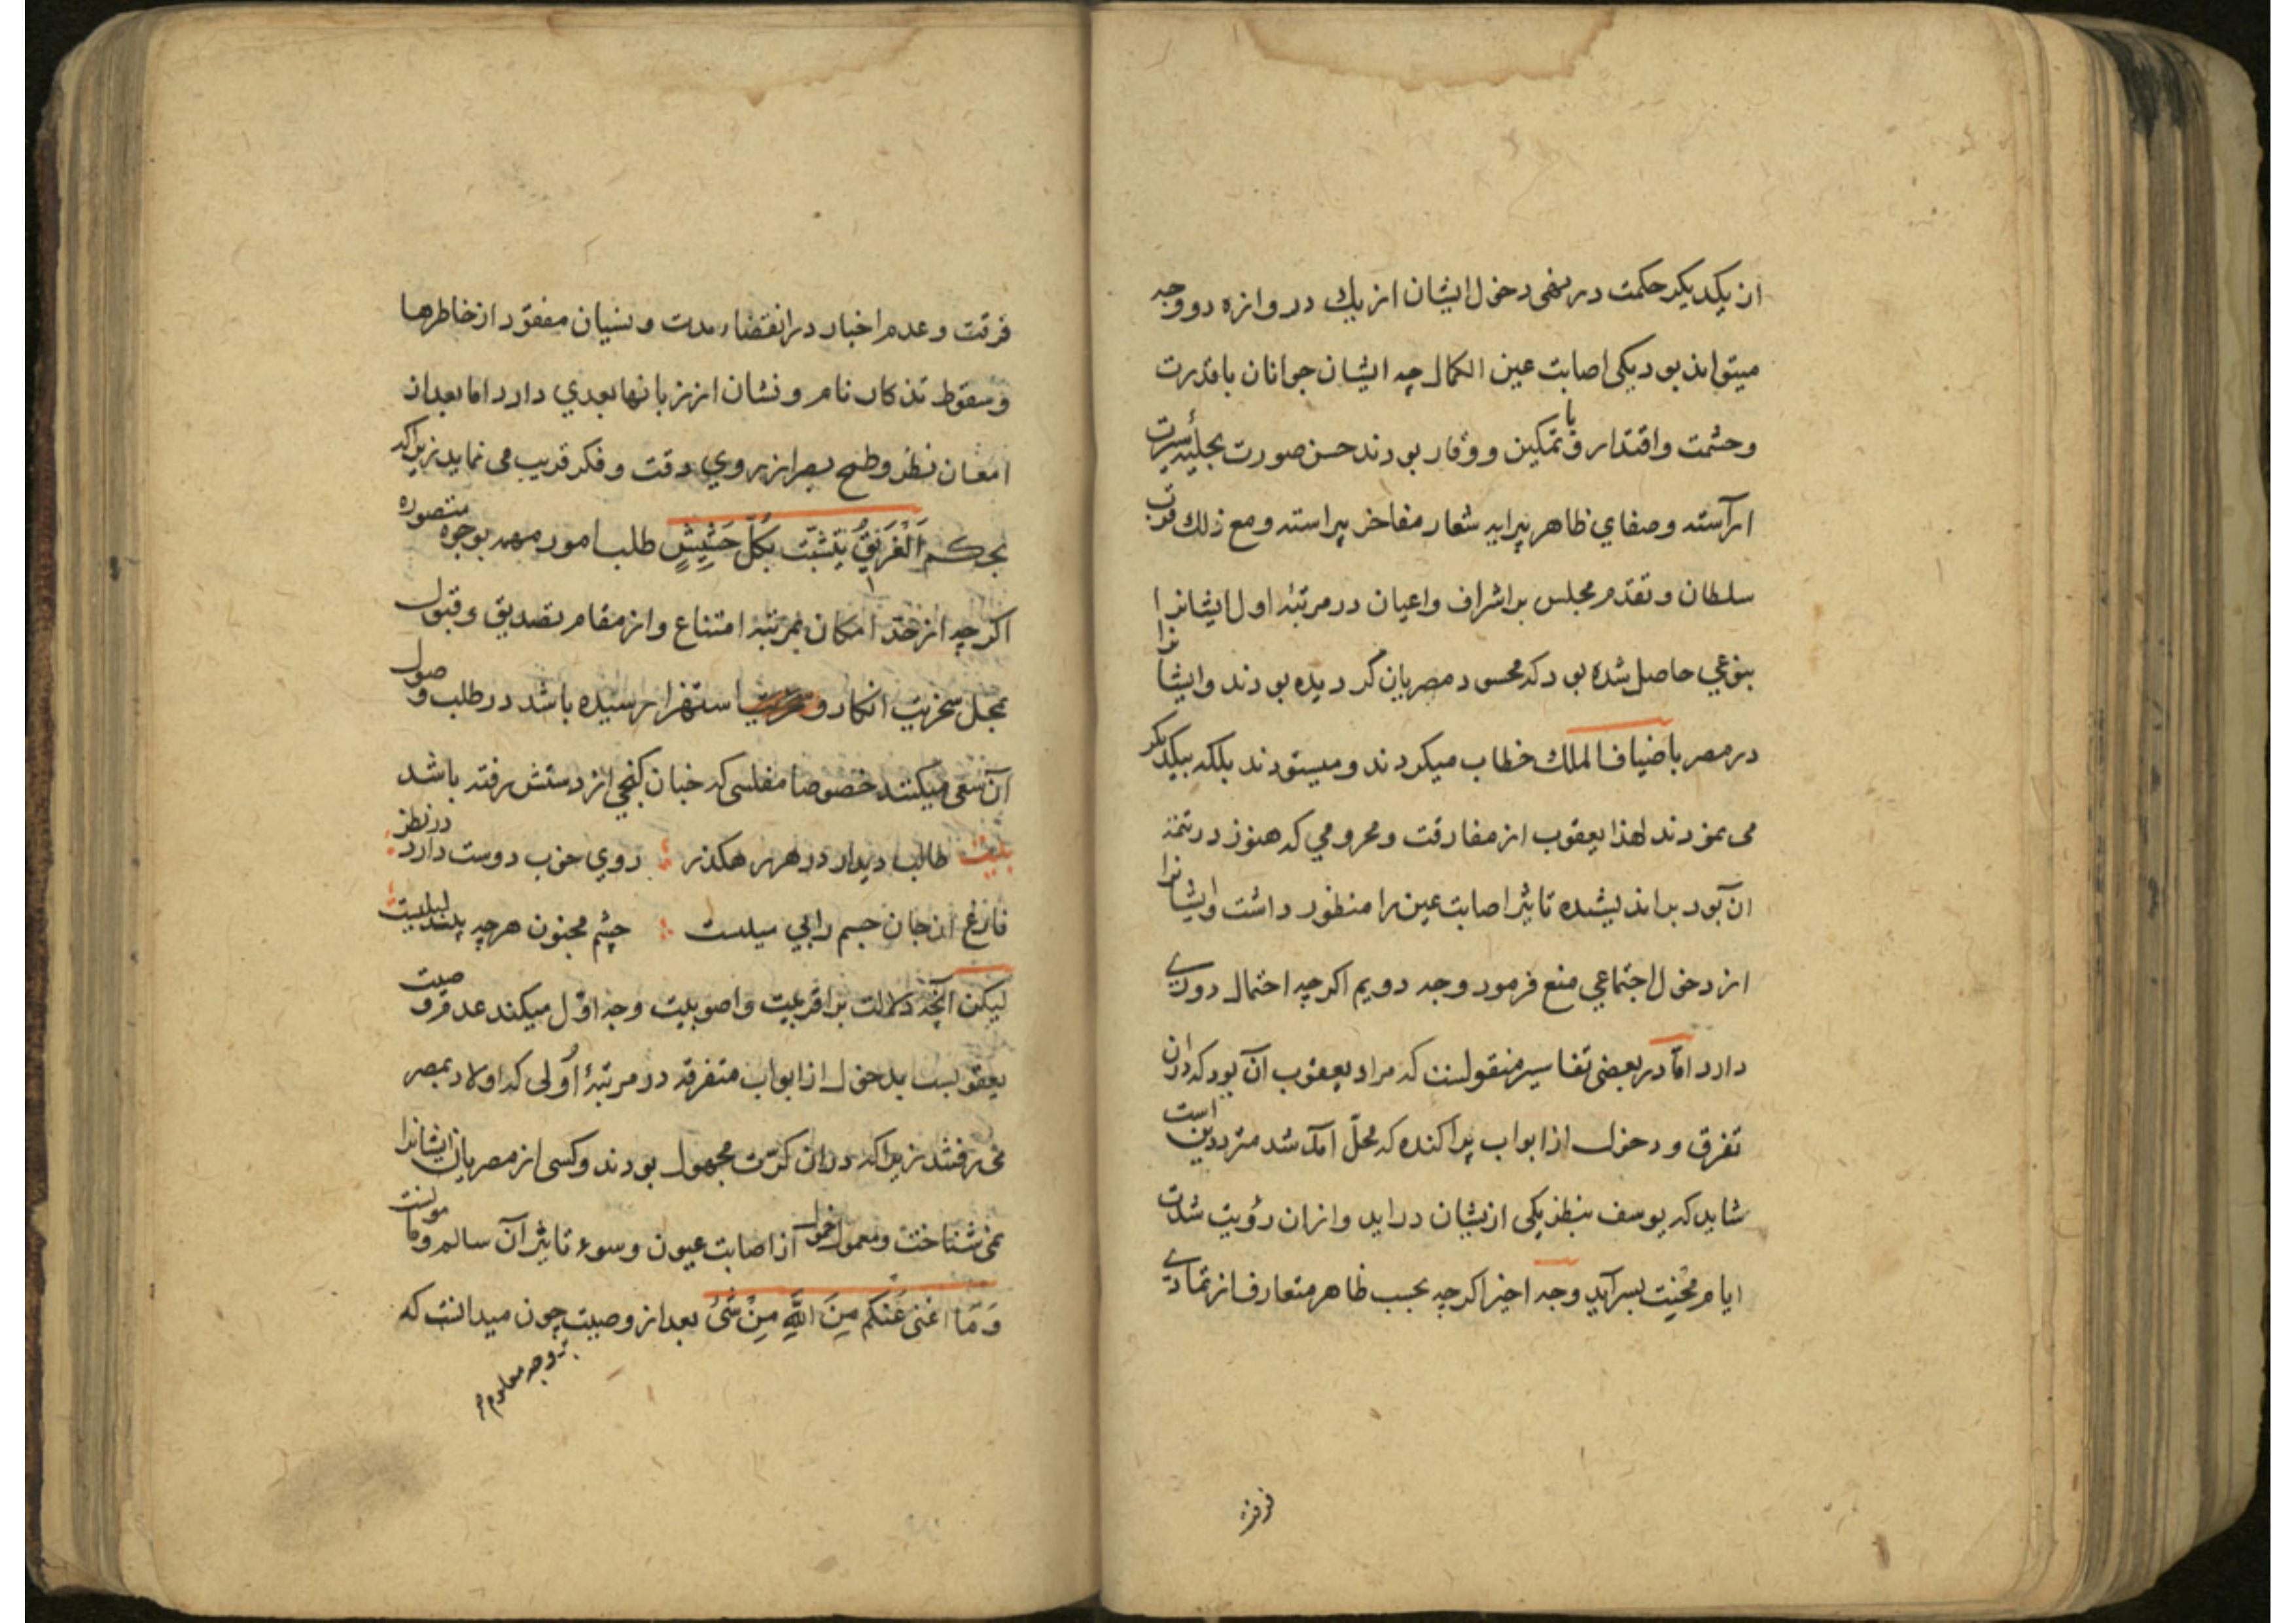 از یکدیکر حکمت در نهی دخول ایشان از یك دروازه دو وجه
میتواند بود یکی اصابت عین الکمال چه ایشان جوانان با قدرت
وحشمت واقتدار و با تمکین و وقار بودند حسن صورت بحلیهٔ سیرت
آراسته وصفاي ظاهر پیرایه شعار مفاخر پیراسته ومع ذلك قرب
سلطان وتقدم مجلس بر اشراف واعیان در مرتبهٔ اول ایشانرا
بنوعي حاصل شده بود که محسود مصریان کردیده بودند وایشانرا
در مصر باضیاف الملك خطاب میکردند ومیستودند بلکه بیکدیکر
می نمودند لهذا یعقوب از مفارقت ومحرومي که هنوز در تتمهٔ
آن بود براندیشیده تاثیر اصابت عین را منظور داشت وایشانرا
از دخول اجتماعي منع فرمود وجه دویم اکرچه احتمال دوري
دارد اما در بعضی تفاسیر منقولست که مراد یعقوب آن بود که دران
تفرق ودخول از ابواب پراکنده که محلّ آمد شد مترددین است
شاید که یوسف بنظر یکی ازیشان دراید وازان رؤیت شدت
ایام محنت بسر آید وجه اخیر اکرچه بحسب ظاهر متعارف از تمادي
فرقت
فرقت وعدم اخبار در انقضاء مدت ونسیان مفقود از خاطرها
وسقوط تذکار نام ونشان از زبانها بعدي دارد اما بعد از
امعان نظر وطمح بصر از روي دقت وفکر قریب می نماید زیراکه
بحکم اَلْغَرِیْقُ یَتَشَبَّثُ بِکُلِّ حَشِیْشٍ طلب امور مهمه بوجوه متصوره
اکرچه از حدّ امکان بمرتبهٔ امتناع واز مقام تصدیق وقبول
بمحل سخریت انکار و استهزا رسیده باشد در طلب وصول
آن سعی میکنند خصوصا مفلسی که خبان کنجی از دستش رفته باشد
بیت طالب دیدار در هر رهکذر روي خوب دوست دارد در نظر
فارغ از جان جسم را بي میلست چشم مجنون هرچه بیند لیلیست
لیکن آنچه دلالت بر اقربیت واصوبیت وجه اوّل میکند عدم وصیت
یعقوبست بدخول از ابواب متفرقه در مرتبهٔ اُولی که اولاد بمصر
می رفتند زیراکه دران کرّت مجهول بودند وکسی از مصریان ایشانرا
نمی شناخت ومعمول خمول از اصابت عیون وسوء تاثیر آن سالم ومامونست
وَمَا اُغْنِی عَنْکُمْ مِنَ اللهِ مِنْ شَیْءٍ بعد از وصیت چون میدانست که